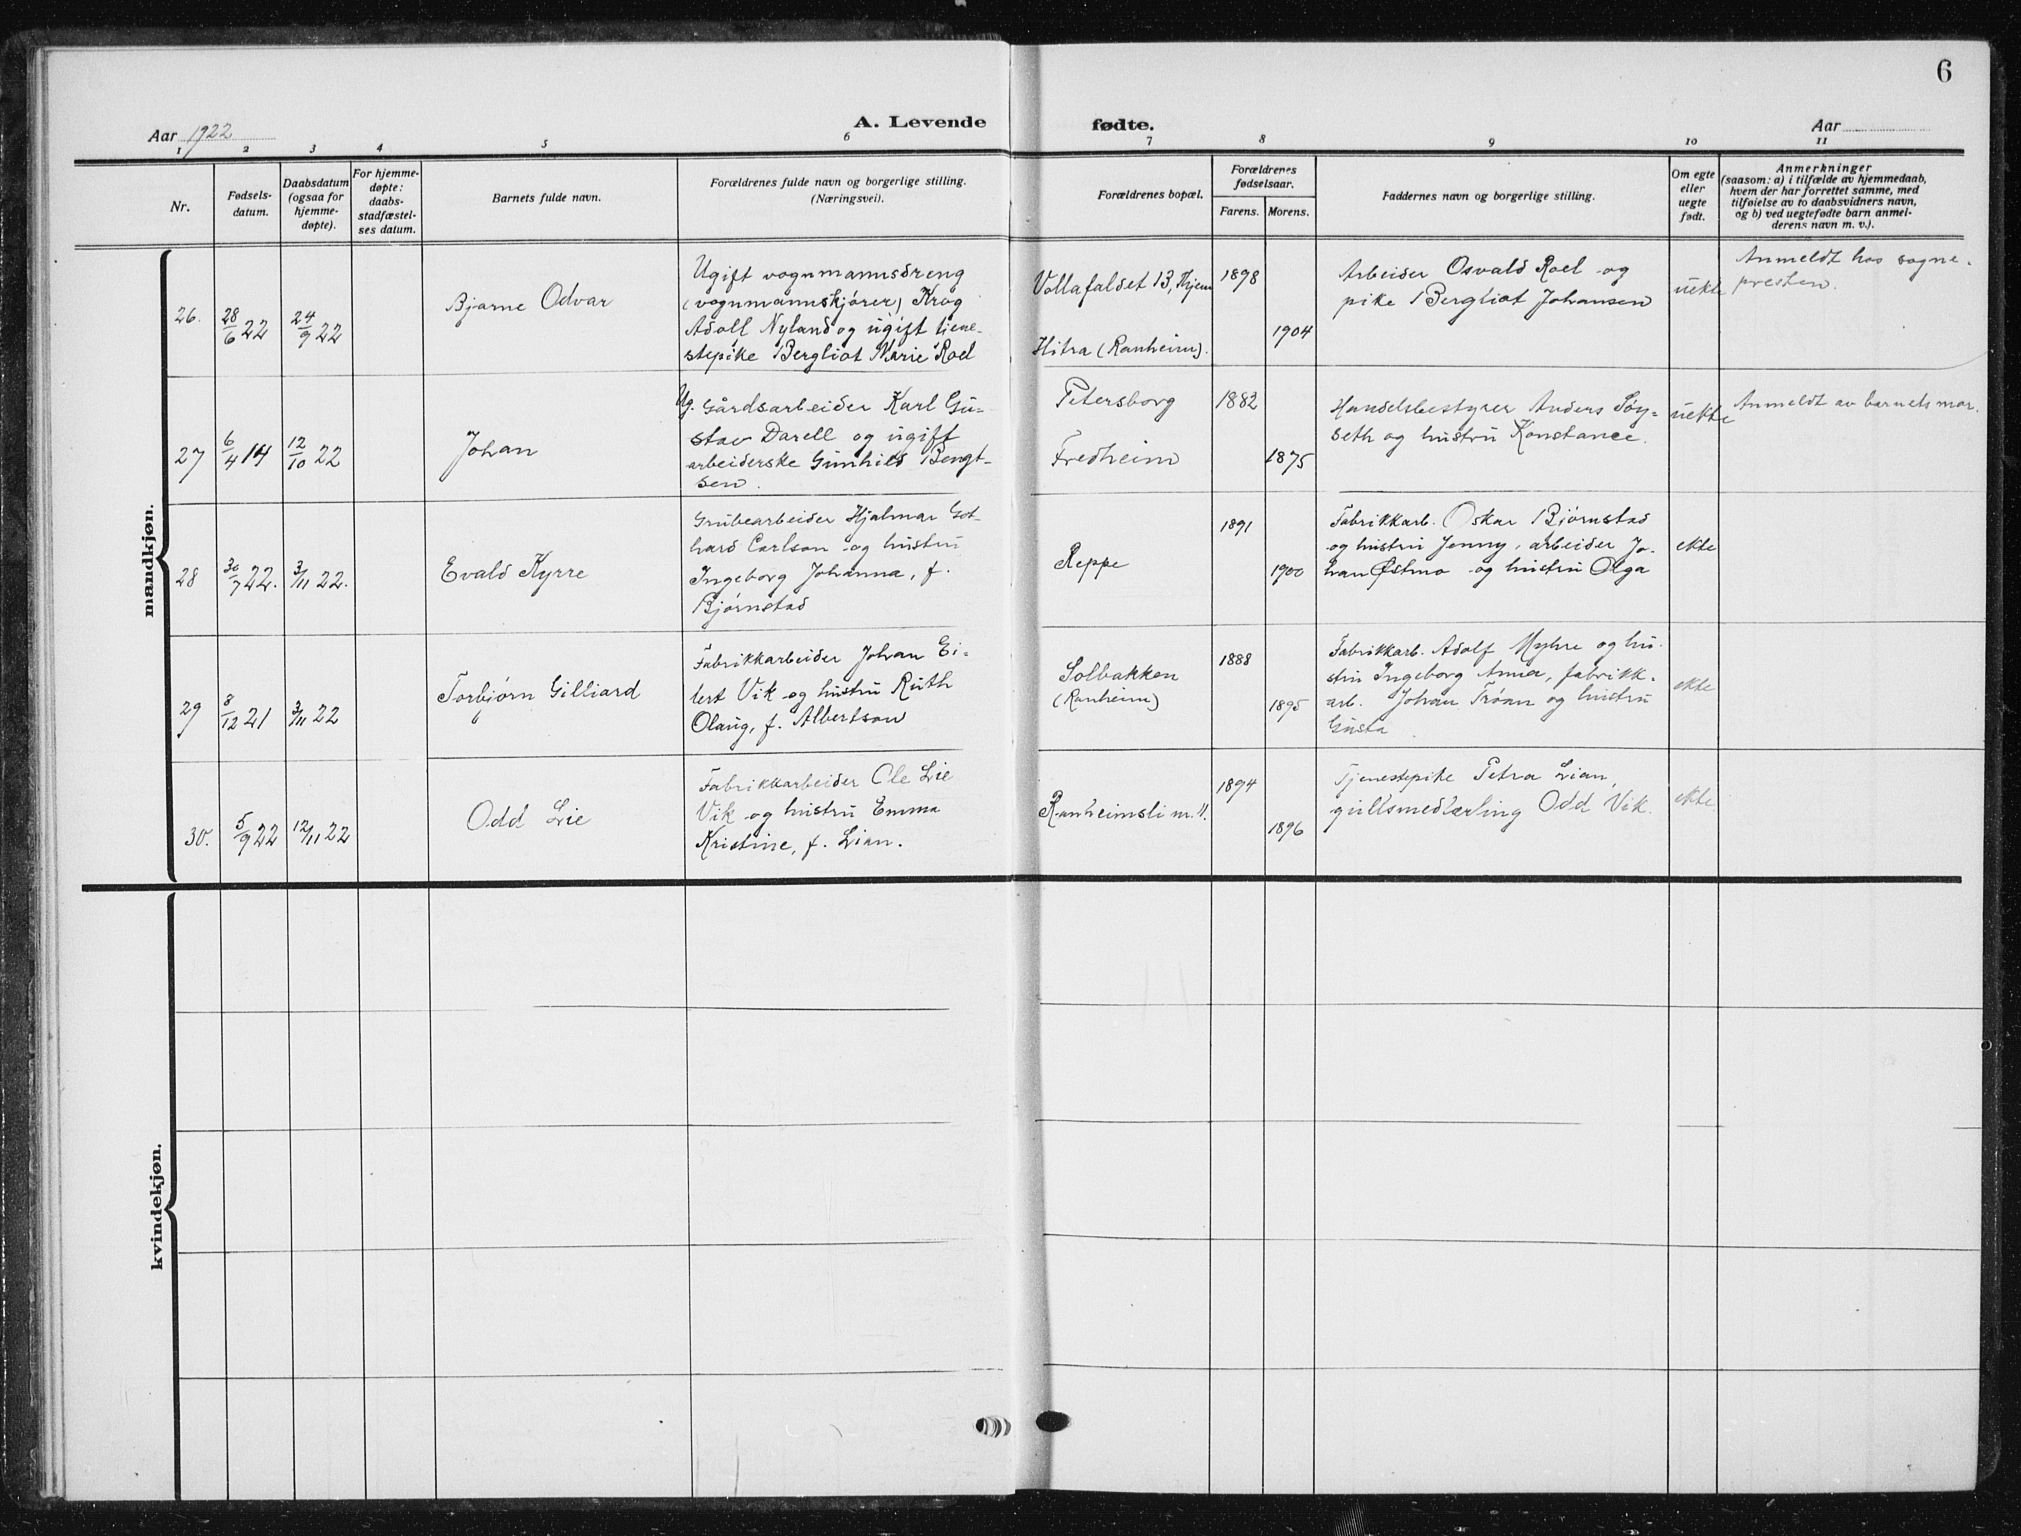 6
Aar 1922
A. Levende
fødte.
Aar
1 2 3 4 5 6 7 8 9 10 11
Nr.
Fødsels-
datum.
Daabsdatum
(ogsaa for
hjemme-
døpte).
For hjemme-
døpte:
daabs-
stadfæstel-
ses datum.
Barnets fulde navn.
Forældrenes fulde navn og borgerlige stilling.
(Næringsvei).
Forældrenes bopæl.
Forældrenes
fødselsaar.
Farens. Morens.
Faddernes navn og borgerlige stilling.
Om egte
eller
uegte
født.
Anmerkninger
(saasom: a) i tilfælde av hjemmedaab,
hvem der har forrettet samme, med
tilføielse av to daabsvidners navn,
og b) ved uegtefødte barn anmel-
derens navn m. v.).
mandkjøn.
26.
28/6 22
24/9 22
Bjarne Odvar
Ugift vognmannsdreng
(vognmannskjører) Krog
Adolf Nyland og ugift tjene-
stepike Bergliot Marie Roel
Vollafaldet 13, Thjem
Hitra (Ranheim).
1898
1904
Arbeider Osvald Roel og
pike Bergliot Johansen
uekte
Anmeldt hos sogne-
presten.
27
6/4 14
12/10 22
Johan
Ug. Gårdsarbeider Karl Gu-
stav Darell og ugift
arbeiderske Gunhild Bengt-
sen.
Petersborg
Fredheim
1882
1875
Handelsbestyrer Anders Søy-
seth og hustru Konstance.
uekte
Anmeldt av barnets mor.
28
30/7 22.
3/11 22.
Evald Kyrre
Grubearbeider Hjalmar Got-
hard Carlson og hustru
Ingeborg Johanna, f.
Bjørnstad
Reppe
1891
1900
Fabrikkarb. Oskar Bjørnstad
og hustru Jenny, arbeider Jo-
han Østmo og hustru Olga
ekte
29
8/12 21
3/11 22
Torbjørn Gilliard
Fabrikkarbeider Johan Ei-
lert Vik og hustru Ruth
Olaug, f. Albertson
Solbakken
(Ranheim)
1888
1895
Fabrikkarb. Adolf Myhre og hu-
stru Ingeborg Anna, fabrikk-
arb. Johan Trøan og hustru
Gusta
ekte
30.
5/9 22
12/11 22
Odd Lie
Fabrikkarbeider Ole Lie
Vik og hustru Emma
Kristine, f. Lian.
Ranheimsli m. 11.
1894
1896
Tjenestepike Petra Lian,
gullsmedlærling Odd Vik.
ekte
kvindekjøn.